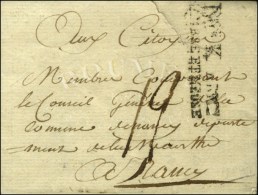 Aux Citoy
Membres Composant
le Conseil Général de la
Commune de nancy départe
ment de la Meurthe
19
a Nancy